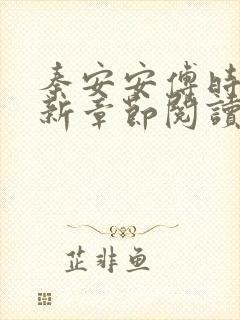 秦安安傅時
新章節閱讀
芷非魚